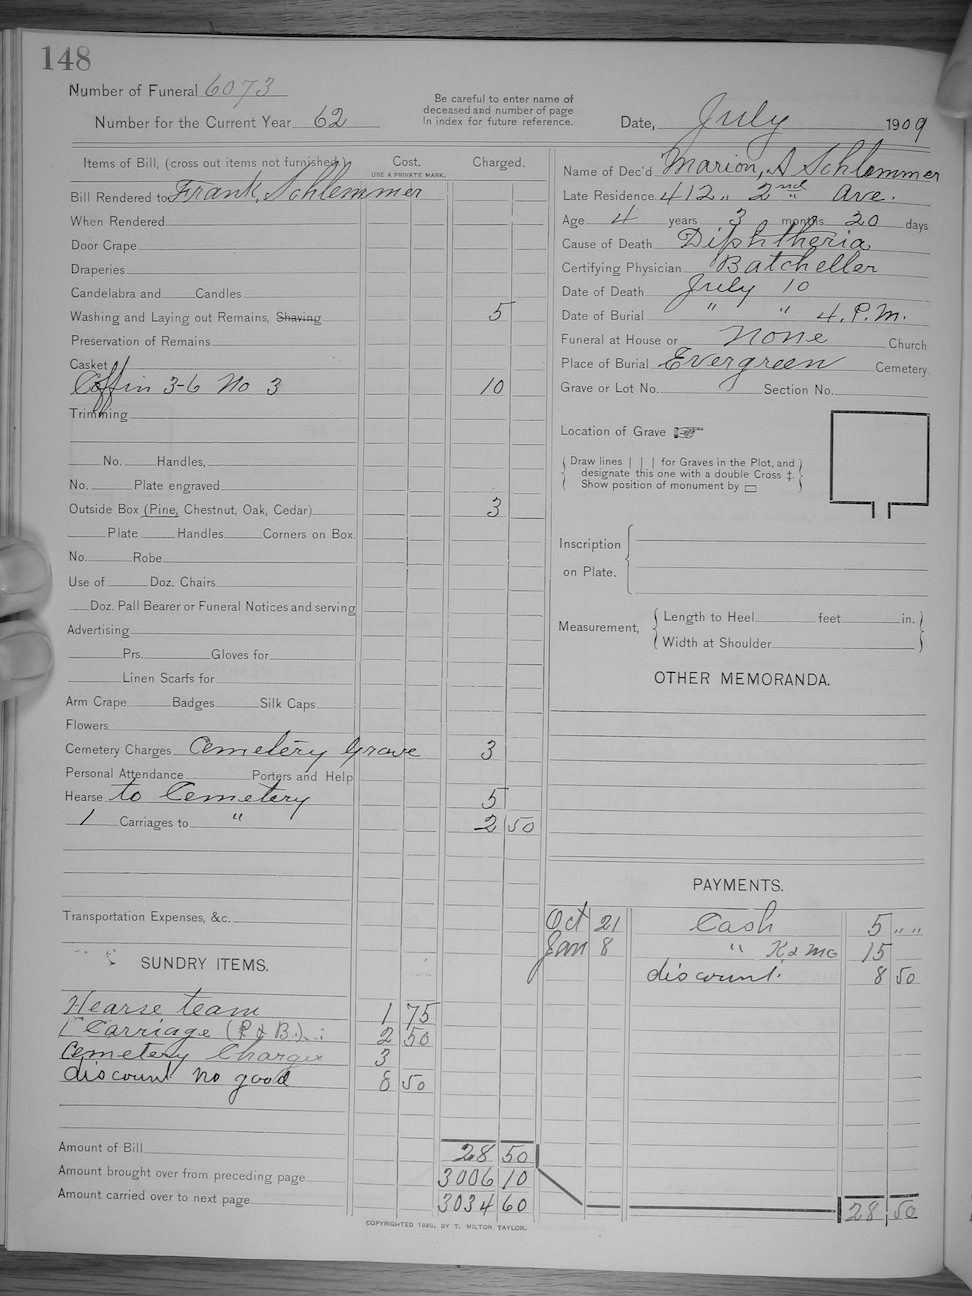 148
Number of Funeral 6073
Number for the Current Year 62
Be careful to enter name of
deceased and number of page
In index for future reference.
Date, July 1909
Items of Bill, (cross out items not furnished.) Cost. Charged.
USE A PRIVATE MARK.
Bill Rendered to Frank, Schlemmer
When Rendered
Door Crape
Draperies
Candelabra and Candles
Washing and Laying out Remains, Shaving 5
Preservation of Remains
Casket
Coffin 3-6 No 3 10
Trimming
No. Handles,
No. Plate engraved
Outside Box (Pine, Chestnut, Oak, Cedar) 3
Plate Handles Corners on Box.
No. Robe
Use of Doz. Chairs
Doz. Pall Bearer or Funeral Notices and serving
Advertising
Prs. Gloves for
Linen Scarfs for
Arm Crape Badges Silk Caps
Flowers
Cemetery Charges Cemetery Grave 3
Personal Attendance Porters and Help
Hearse to Cemetery 5
1 Carriages to " 2 50
Transportation Expenses, &c.
SUNDRY ITEMS.
Hearse team 1 75
1 Carriage (P & B.) 2 50
Cemetery Charges 3
discount no good 8 50
Amount of Bill 28 50
Amount brought over from preceding page 3006 10
Amount carried over to next page 3034 60
COPYRIGHTED 1890, BY T. MILTON TAYLOR.
Name of Dec'd Marion, A Schlemmer
Late Residence 412 " 2nd " Ave.
Age 4 years 3 months 20 days
Cause of Death Diphtheria
Certifying Physician Batcheller
Date of Death July 10
Date of Burial " " 4. P.M.
Funeral at House or None Church
Place of Burial Evergreen Cemetery.
Grave or Lot No. Section No.
Location of Grave
Draw lines | | | for Graves in the Plot, and
designate this one with a double Cross ‡.
Show position of monument by ▭
Inscription
on Plate.
Measurement,
Length to Heel feet in.
Width at Shoulder
OTHER MEMORANDA.
PAYMENTS.
Oct 21 Cash 5 " "
Jan 8 " K & MG 15
discount. 8 50
28 50